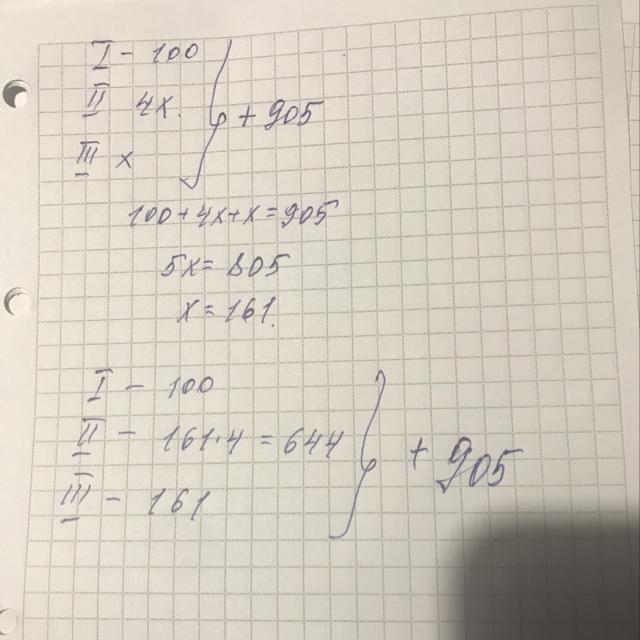 I - 100
II 4x. + 905
III x
100+4x+x=905
5x=805
x=161.
I - 100
II - 161·4 = 644 + 905
III - 161